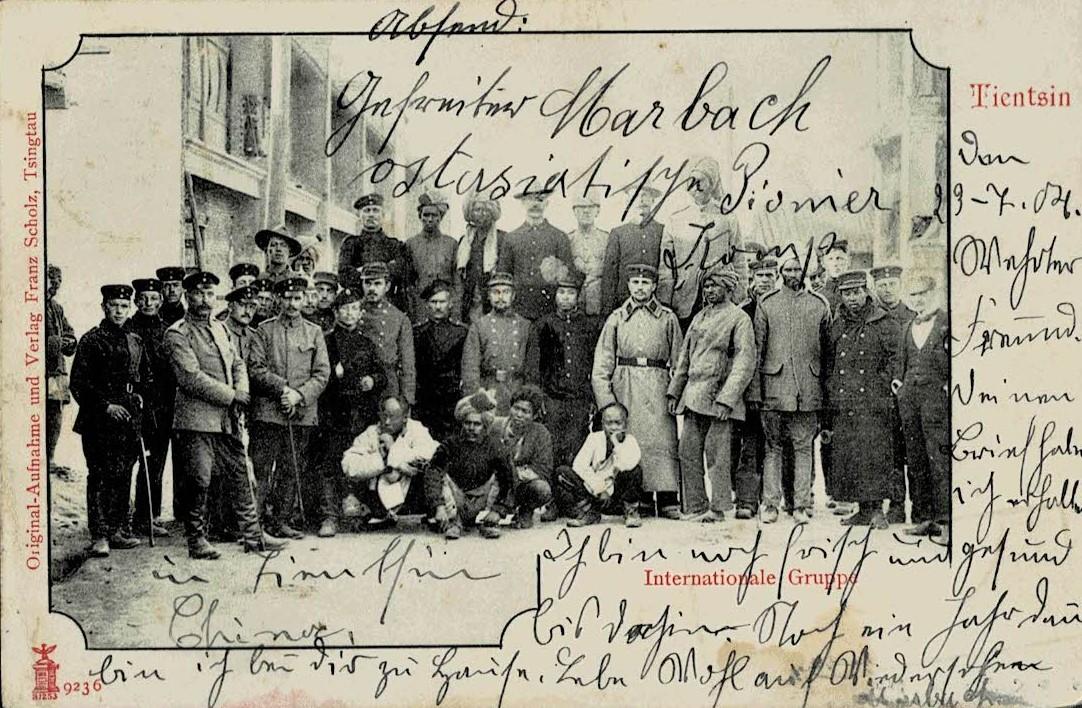 Absend:
Gefreiter Marbach
ostasiatische Pionier
Komp
in Tientsin
China,
Tientsin
den
23-7.04.
Wehrter
Freund.
Deinen
Brief habe
ich erhalt
Ich bin noch frisch und gesund
bis dahin. Noch ein Jahr dan
bin ich bei dir zu Hause. Lebe Wohl auf Wiedersehen
Internationale Gruppe
Original-Aufnahme und Verlag Franz Scholz, Tsingtau
9236